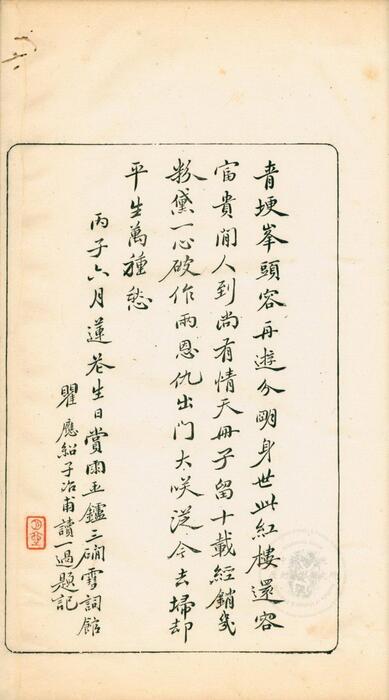 青埂峯頭容再遊分明身世此紅樓還容
富貴閒人到尚有情天冊子留十載經銷幾
粉黛一心破作兩恩仇出門大咲從今去掃却
平生萬種愁
丙子六月蓮花生日賞雨玉鑪三磵雪詞館
瞿應紹子冶甫讀一過題記